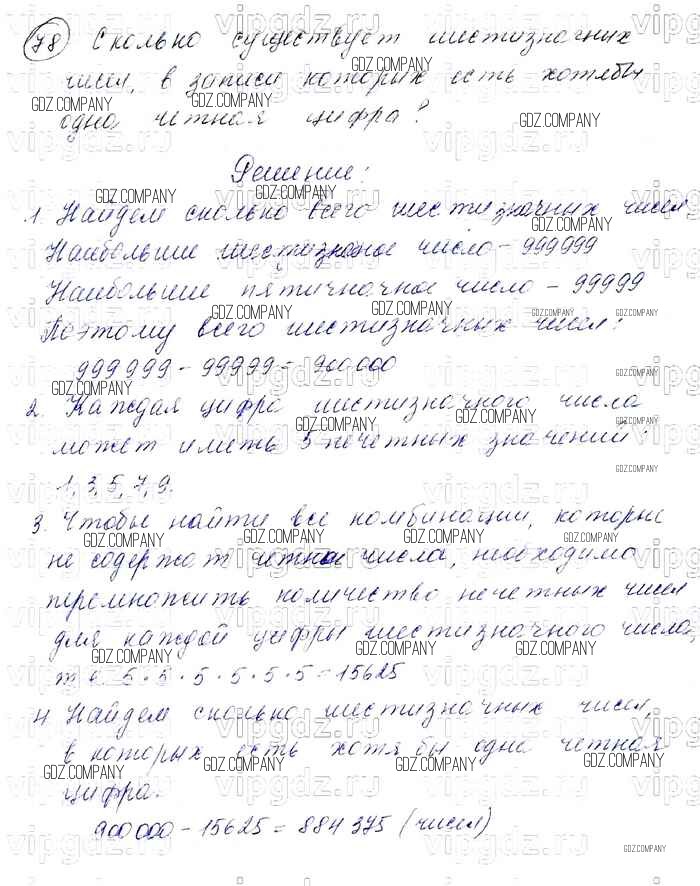 78 Сколько существует шестизначных
чисел, в записи которых есть хотябы
одна четная цифра?
Решение:
1. Найдем сколько всего шестизначных чисел
Наибольшие шестизначное число - 999999
Наибольшие пятичначное число - 99999
Поэтому всего шестизначных чисел:
999999 - 99999 = 900000
2. Каждая цифра шестизначного числа
может иметь 5 нечетных значений:
1, 3, 5, 7, 9.
3. Чтобы найти все комбинации, которые
не содержат четные числа, необходимо
перемножить количество нечетных чисел
для каждой цифры шестизначного числа,
т. е. 5 · 5 · 5 · 5 · 5 · 5 = 15625
4. Найдем сколько шестизначных чисел,
в которых есть хотя бы одна четная
цифра.
900000 - 15625 = 884375 (чисел)
vipgdz.ru
GDZ.COMPANY